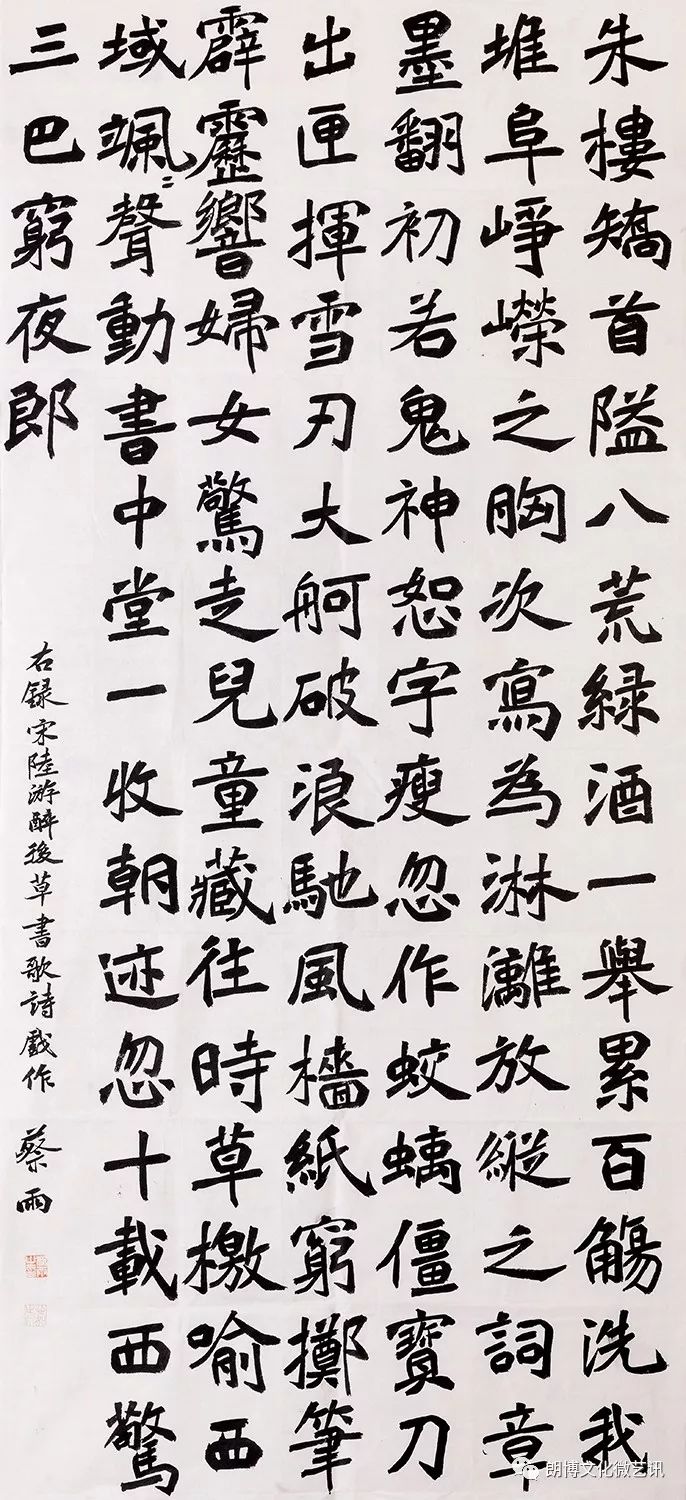 朱樓矯首隘八荒緑酒一舉累百觴洗我
堆阜崢嶸之胸次寫為淋灕放縱之詞章
墨翻初若鬼神恕字瘦忽作蛟螭僵寶刀
出匣揮雪刃大舸破浪馳風檣紙窮擲筆
霹靂響婦女驚走兒童藏往時草檄喻西
域颯〻聲動書中堂一收朝迹忽十載西驚
三巴窮夜郎
右録宋陸游醉後草書歌詩戲作 蔡雨
朗博文化微艺讯